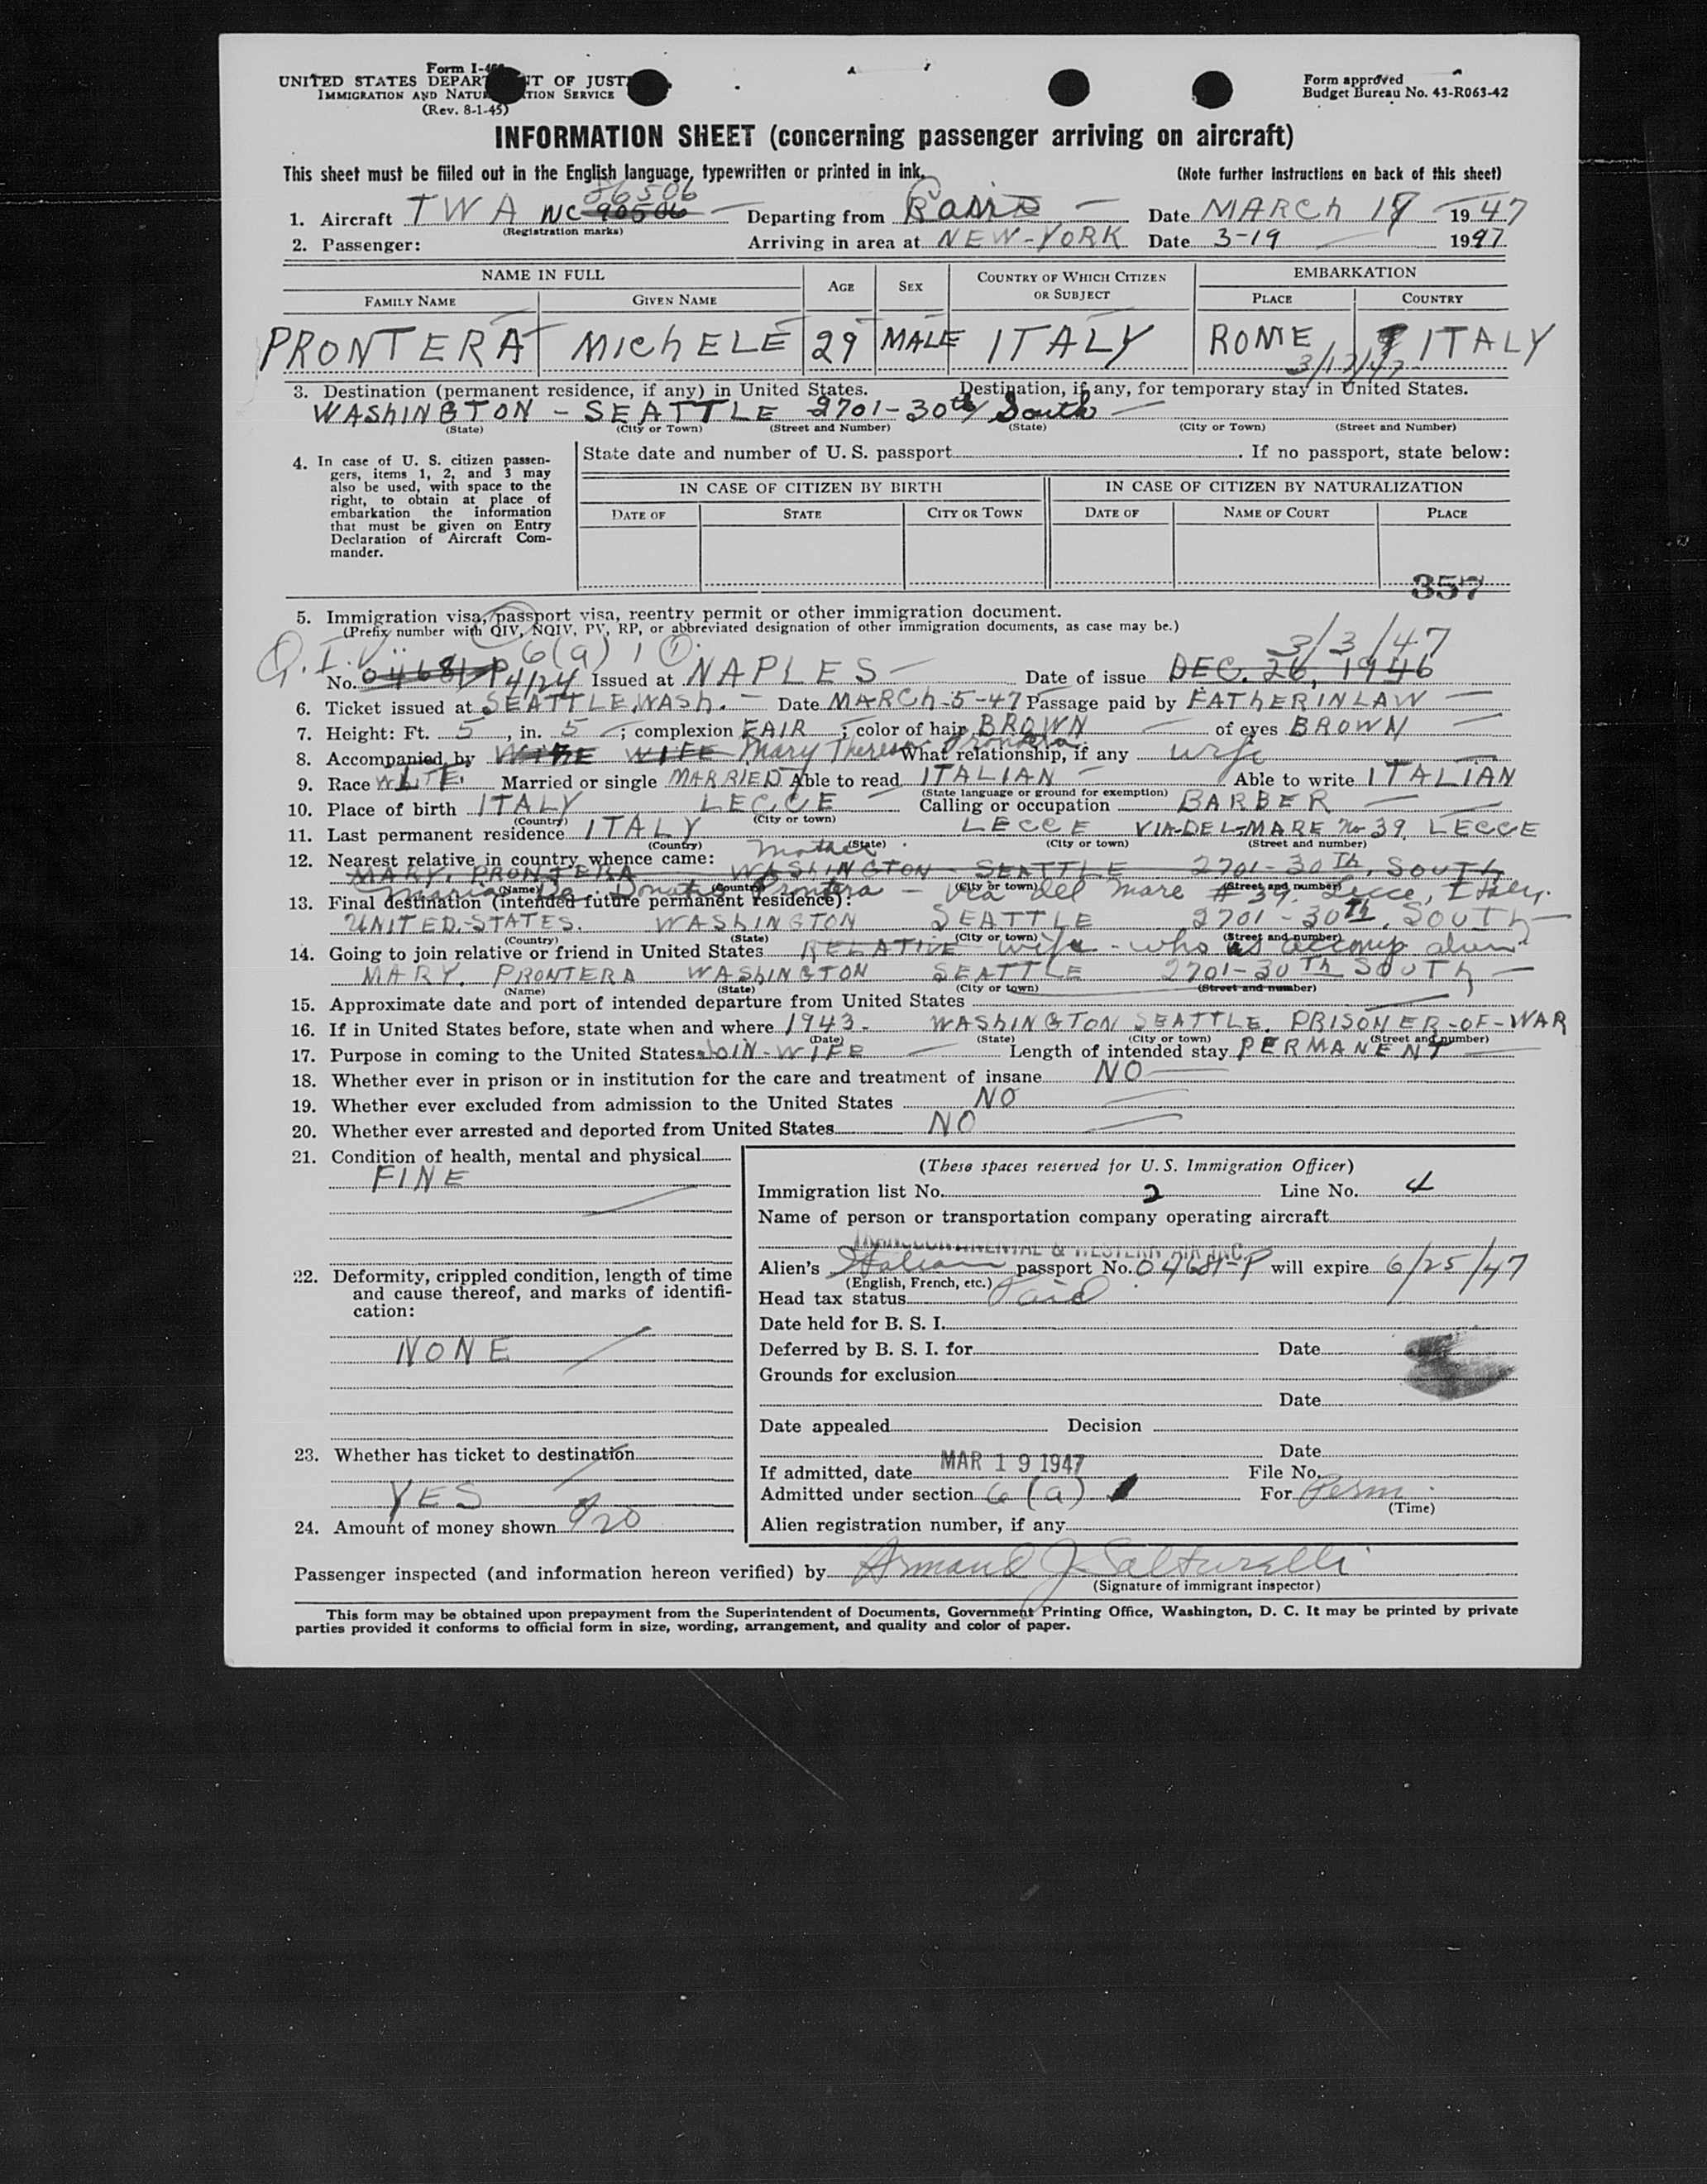 Form I-4
UNITED STATES DEPARTMENT OF JUSTICE
IMMIGRATION AND NATURALIZATION SERVICE
(Rev. 8-1-45)
Form approved
Budget Bureau No. 43-R063-42
INFORMATION SHEET (concerning passenger arriving on aircraft)
This sheet must be filled out in the English language, typewritten or printed in ink. (Note further instructions on back of this sheet)
86506
1. Aircraft TWA NC 90506 Departing from Paris Date MARCH 18 1947
(Registration marks)
2. Passenger: Arriving in area at NEW-YORK Date 3-19 1947
NAME IN FULL AGE SEX COUNTRY OF WHICH CITIZEN OR SUBJECT EMBARKATION
FAMILY NAME GIVEN NAME PLACE COUNTRY
PRONTERA MIChELE 29 MALE ITALY ROME ITALY
3/17/47
3. Destination (permanent residence, if any) in United States. Destination, if any, for temporary stay in United States.
WAShINGTON - SEATTLE 2701-30th South
(State) (City or Town) (Street and Number) (State) (City or Town) (Street and Number)
4. In case of U. S. citizen passengers, items 1, 2, and 3 may also be used, with space to the right, to obtain at place of embarkation the information that must be given on Entry Declaration of Aircraft Commander.
State date and number of U. S. passport. If no passport, state below:
IN CASE OF CITIZEN BY BIRTH IN CASE OF CITIZEN BY NATURALIZATION
DATE OF STATE CITY OR TOWN DATE OF NAME OF COURT PLACE
357
5. Immigration visa, passport visa, reentry permit or other immigration document.
(Prefix number with QIV, NQIV, PV, RP, or abbreviated designation of other immigration documents, as case may be.)
Q.I.V. 6(a) 1 3/3/47
No. 04681P 4124 Issued at NAPLES Date of issue DEC. 26, 1946
6. Ticket issued at SEATTLE, WASh. Date MARCh-5-47 Passage paid by FAThER IN LAW
7. Height: Ft. 5, in. 5; complexion FAIR; color of hair BROWN of eyes BROWN
8. Accompanied by WIFE WIFE Mary Theresa Prontera What relationship, if any wife
9. Race WhITE. Married or single MARRIED Able to read ITALIAN Able to write ITALIAN
(State language or ground for exemption)
10. Place of birth ITALY LECCE Calling or occupation BARBER
(Country) (City or town)
11. Last permanent residence ITALY LECCE VIA-DEL-MARE No 39. LECCE
(Country) (State) (City or town) (Street and number)
12. Nearest relative in country whence came: Mother
MARY. PRONTERA WAShINGTON - SEATTLE 2701-30Th. SOUTh
(Name) (Country) (City or town) (Street and number)
Maria Donata Prontera - Via del Mare #39. Lecce, Italy.
13. Final destination (intended future permanent residence):
UNITED-STATES. WAShINGTON SEATTLE 2701-30Th. SOUTh
(Country) (State) (City or town) (Street and number)
14. Going to join relative or friend in United States RELATIVE wife - who is accomp alien
MARY. PRONTERA WAShINGTON SEATTLE 2701-30Th SOUTh
(Name) (State) (City or town) (Street and number)
15. Approximate date and port of intended departure from United States
16. If in United States before, state when and where 1943. WAShINGTON SEATTLE. PRISONER-OF-WAR
(Date) (State) (City or town) (Street and number)
17. Purpose in coming to the United States JOIN-WIFE Length of intended stay PERMANENT
18. Whether ever in prison or in institution for the care and treatment of insane NO
19. Whether ever excluded from admission to the United States NO
20. Whether ever arrested and deported from United States NO
21. Condition of health, mental and physical
FINE
22. Deformity, crippled condition, length of time and cause thereof, and marks of identification:
NONE
23. Whether has ticket to destination
YES
24. Amount of money shown $20
(These spaces reserved for U. S. Immigration Officer)
Immigration list No. 2 Line No. 4
Name of person or transportation company operating aircraft
TRANSCONTINENTAL & WESTERN AIR INC.
Alien's Italian passport No. 04681-P will expire 6/25/47
(English, French, etc.)
Head tax status Paid
Date held for B. S. I.
Deferred by B. S. I. for Date
Grounds for exclusion
Date
Date appealed Decision
Date
If admitted, date MAR 19 1947 File No.
Admitted under section 6(a) 1 For Perm.
(Time)
Alien registration number, if any
Passenger inspected (and information hereon verified) by Armand J. Salturelli
(Signature of immigrant inspector)
This form may be obtained upon prepayment from the Superintendent of Documents, Government Printing Office, Washington, D. C. It may be printed by private
parties provided it conforms to official form in size, wording, arrangement, and quality and color of paper.